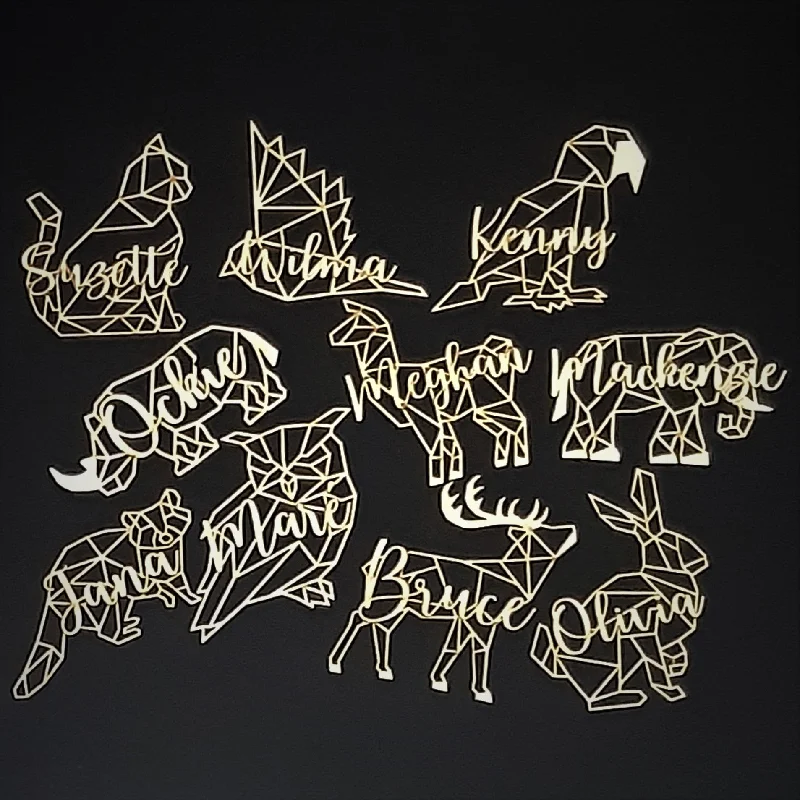 Suzette
Wilma
Kenny
Ockie
Meghan
Mackenzie
Jana
Maré
Bruce
Olivia